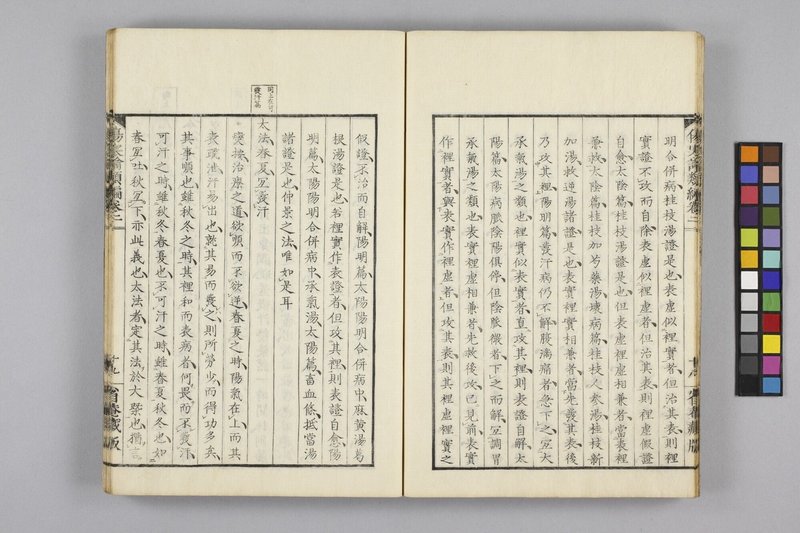 明合併病桂枝湯證是也表虛似裡實者但治其表則裡
實證不攻而自除表虛似裡虛者但治其表則裡虛假證
自愈太陰篇桂枝湯證是也但表虛裡虛相兼者當表裡
兼救太陰篇桂枝加芍藥湯壞病篇桂枝人參湯桂枝新
加湯救逆湯諸證是也表實裡實相兼者當先發其表後
乃攻其裡陽明篇發汗病仍不解腹滿痛者急下之宜大
承氣湯之類也裡實似表實者直攻其裡則表證自解太
陽篇太陽病脈陰陽俱停但陰脈微者下之而解宜調胃
承氣湯之類也表實裡虛相兼者先救後攻已見前表實
作裡實者與表實作裡虛者但攻其表則其裡虛裡實之
似證不治而自解陽明篇太陽陽明合併病中麻黃湯葛
根湯證是也若裡實作表證者但攻其裡則表證自愈陽
明篇太陽陽明合併病中承氣湯太陽篇畜血條抵當湯
諸證是也仲景之法唯如是耳
同上在可
發汗篇
太法春夏宜發汗
發揚治療之道欲順而不欲逆春夏之時陽氣在上而其
表疏泄汗易出也就其易而發之則所勞少而得功多矣
其事順也雖秋冬之時其裡和而表病者何畏而不發汗
可汗之時雖秋冬春夏也不可汗之時雖春夏秋冬也如
春宜吐秋宜下亦此義也太法者定其法於大槩也猶言
傷寒論類編卷二
十九
省春藏版